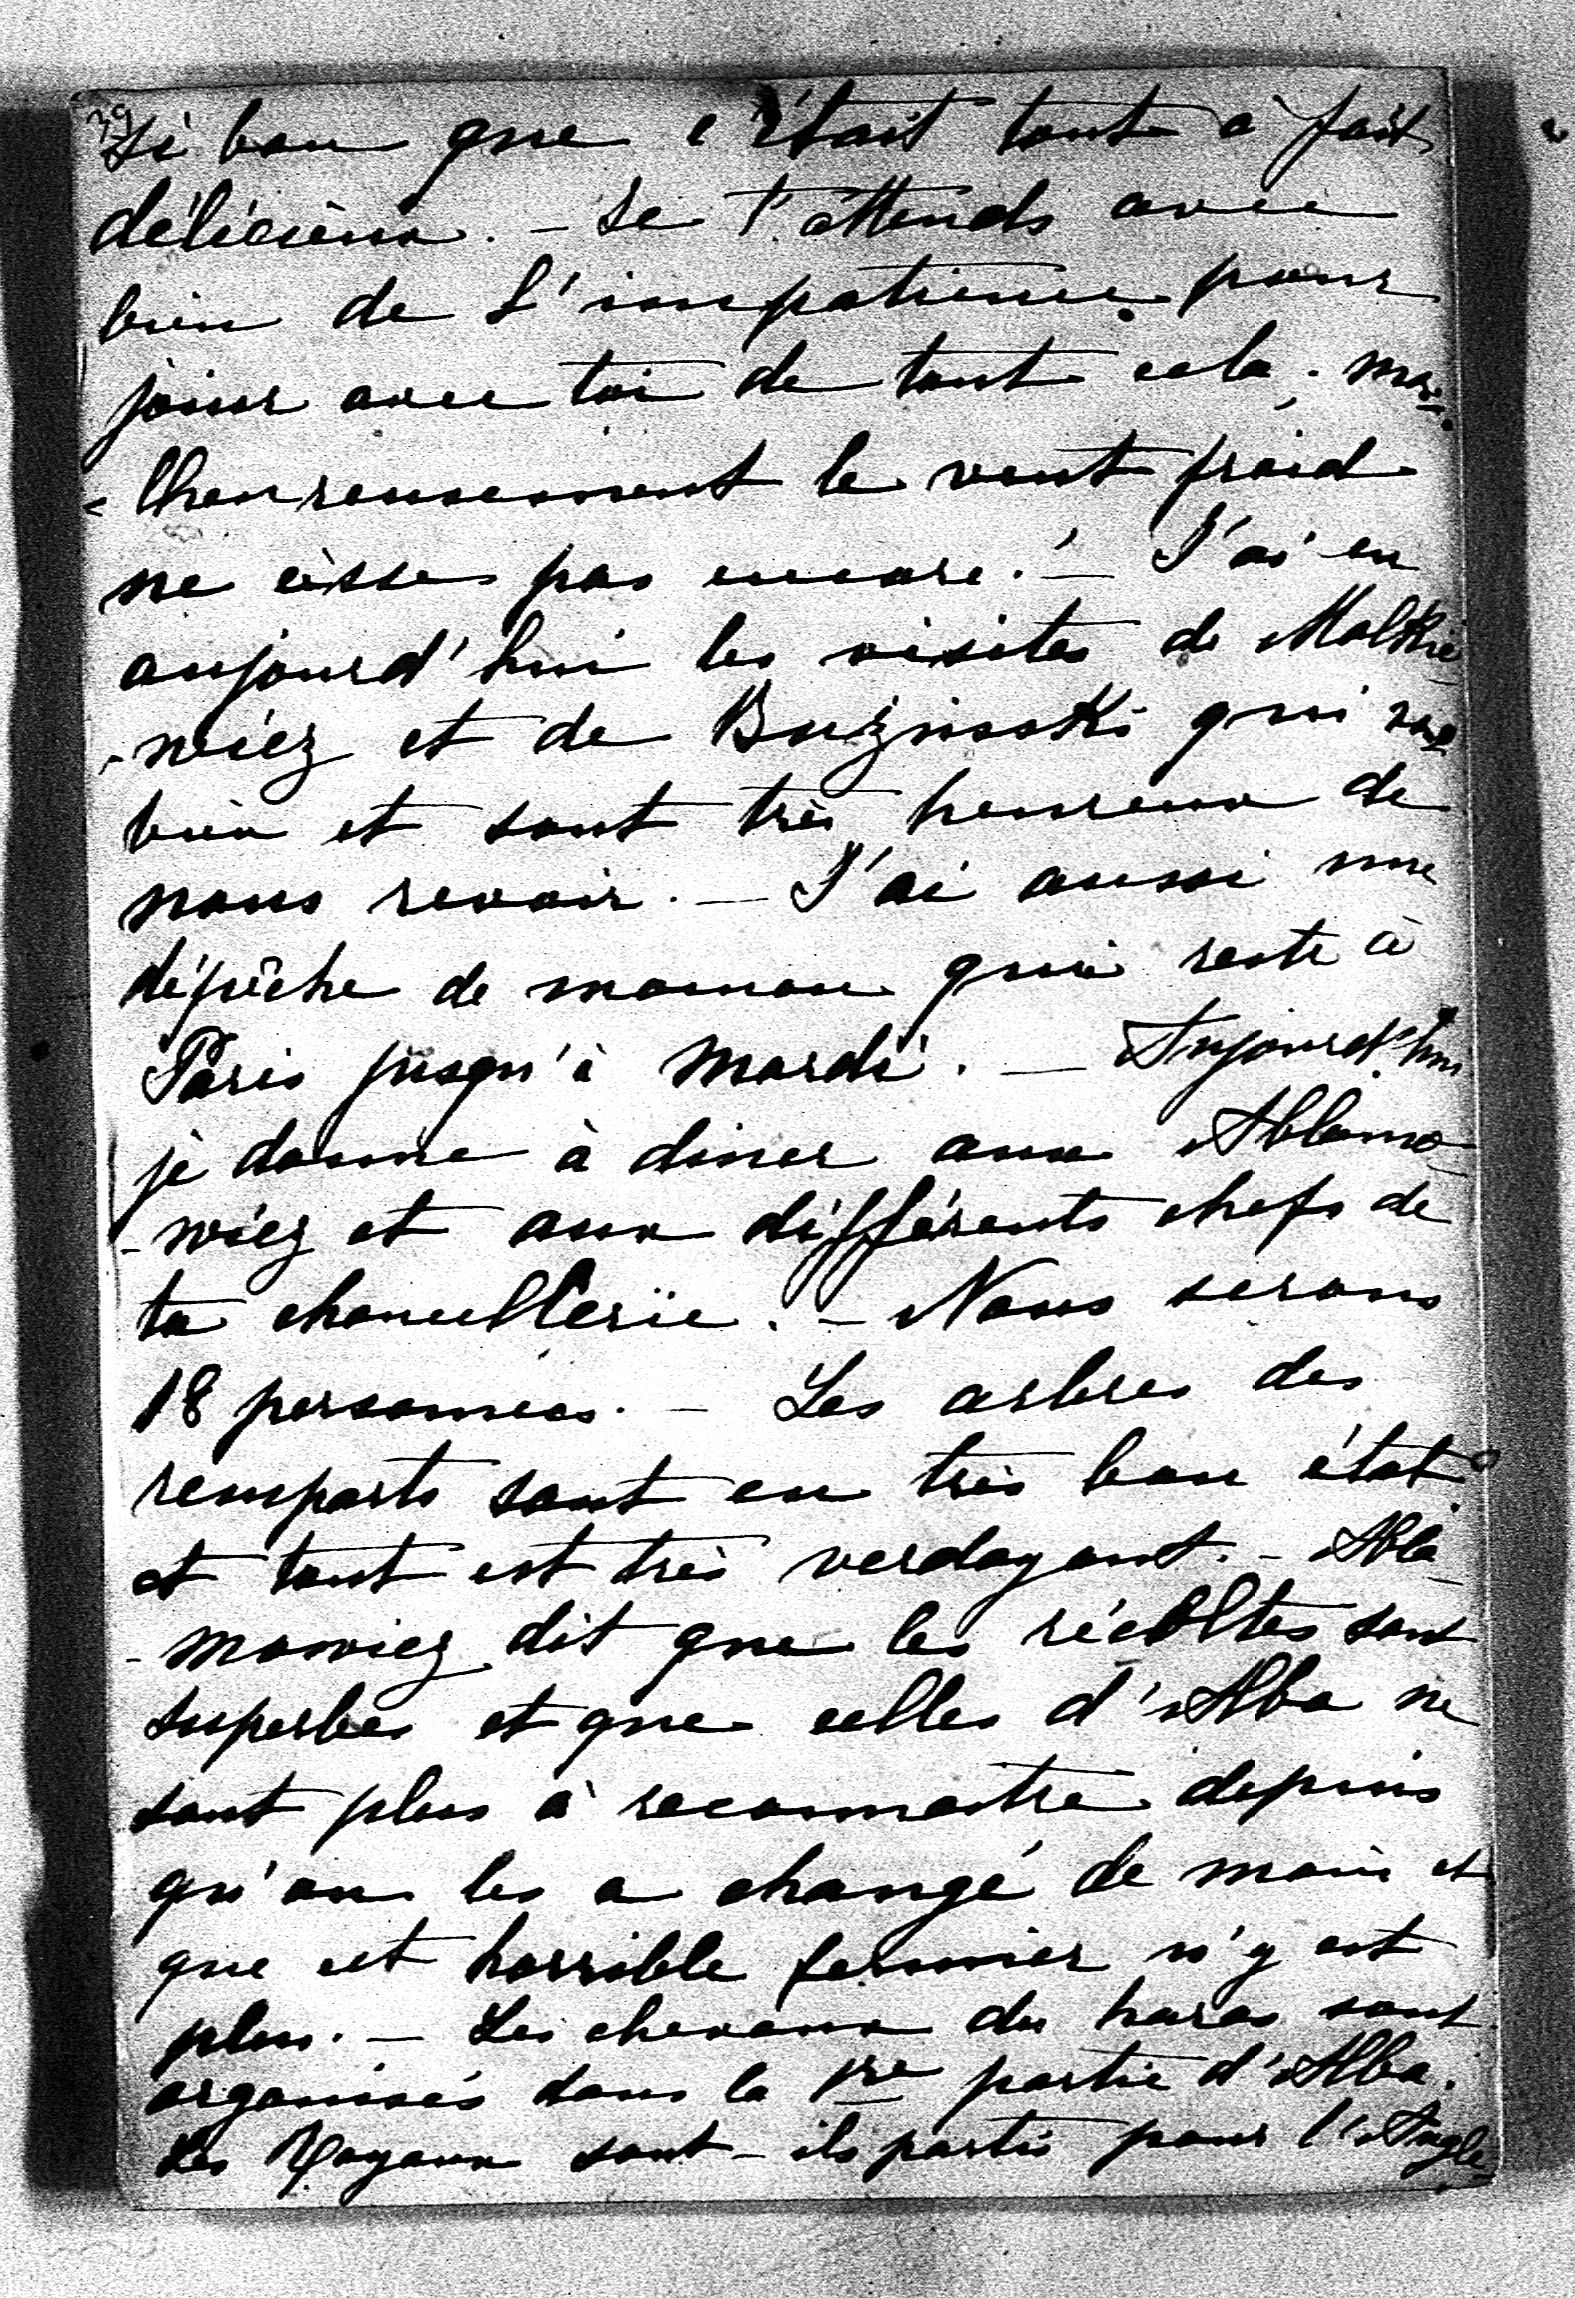 39
si bon que c'était tout à fait
délicieux. – Je t'attends avec
bien de l'impatience pour
jouir avec toi de tout cela. Ma-
-lheureusement le vent froid
ne cesse pas encore. – J'ai eu
aujourd'hui les visites de Malkie-
-wicz et de Buzynski qui vont
bien et sont très heureux de
nous revoir. – J'ai aussi une
dépêche de maman qui reste à
Paris jusqu'à mardi. – Aujourd'hui
je donne à diner aux Ablamo-
-wicz et aux différents chefs de
ta chancellerie. – Nous serons
18 personnes. – Les arbres des
remparts sont en très bon état
et tout est très verdoyant. – Abla-
-mowicz dit que les récoltes sont
superbes et que celles d'Alba ne
sont plus à reconnaitre depuis
qu'on les a changé de main et
que cet horrible fermier n'y est
plus. – Les chevaux du haras sont
organisés dans la 1re partie d'Alba.
Les Royaux sont-ils partis pour l'Angle-